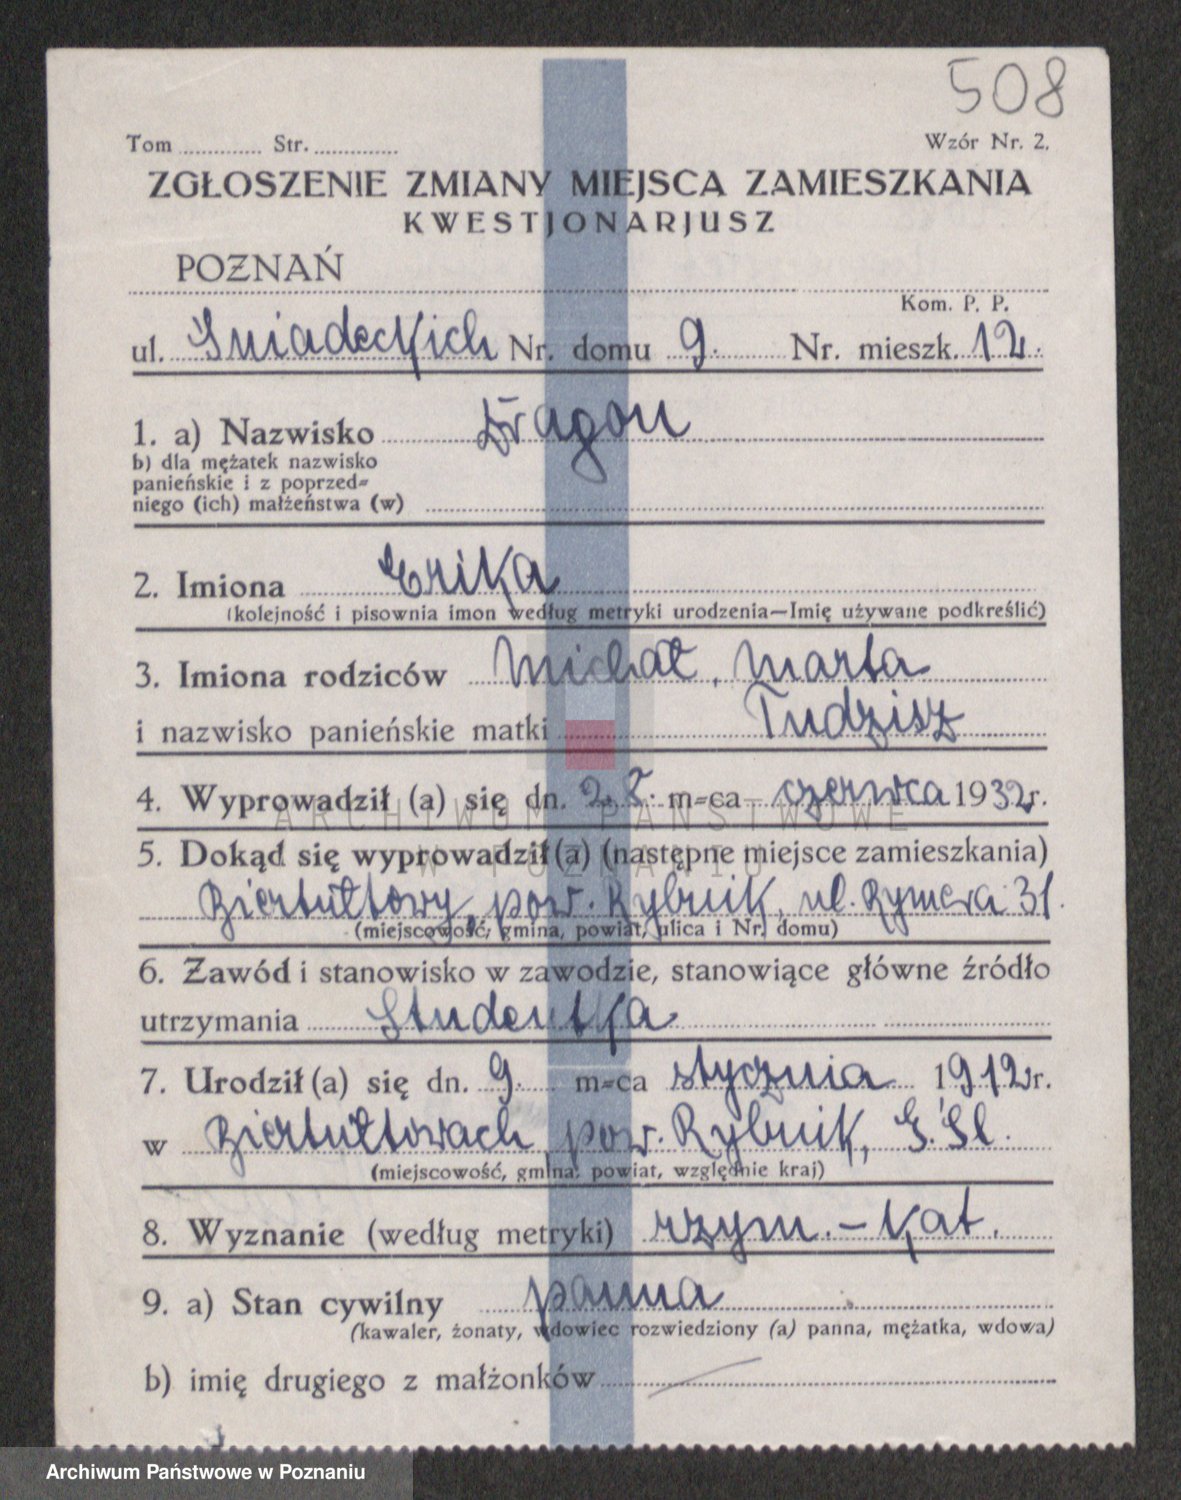 508
Tom ............ Str. ............ Wzór Nr. 2.
ZGŁOSZENIE ZMIANY MIEJSCA ZAMIESZKANIA
KWESTJONARJUSZ
POZNAŃ
Kom. P. P.
ul. Śniadeckich Nr. domu 9. Nr. mieszk. 12.
1. a) Nazwisko Dragon
b) dla mężatek nazwisko
panieńskie i z poprzed=
niego (ich) małżeństwa (w)
2. Imiona Erika
(kolejność i pisownia imon według metryki urodzenia—Imię używane podkreślić)
3. Imiona rodziców Michał, Marta
i nazwisko panieńskie matki Tudzisz
4. Wyprowadził (a) się dn. 28. m=ca czerwca 1932 r.
ARCHIWUM PAŃSTWOWE
5. Dokąd się wyprowadził (a) (następne miejsce zamieszkania)
W POZNANIU
Biertułtowy, pow. Rybnik, ul. Rymera 31.
(miejscowość, gmina, powiat, ulica i Nr. domu)
6. Zawód i stanowisko w zawodzie, stanowiące główne źródło
utrzymania Studentka
7. Urodził (a) się dn. 9. m=ca stycznia 1912 r.
w Biertułtowach pow. Rybnik, G. Śl.
(miejscowość, gmina, powiat, względnie kraj)
8. Wyznanie (według metryki) rzym. - kat.
9. a) Stan cywilny panna
(kawaler, żonaty, wdowiec rozwiedziony (a) panna, mężatka, wdowa)
b) imię drugiego z małżonków
Archiwum Państwowe w Poznaniu